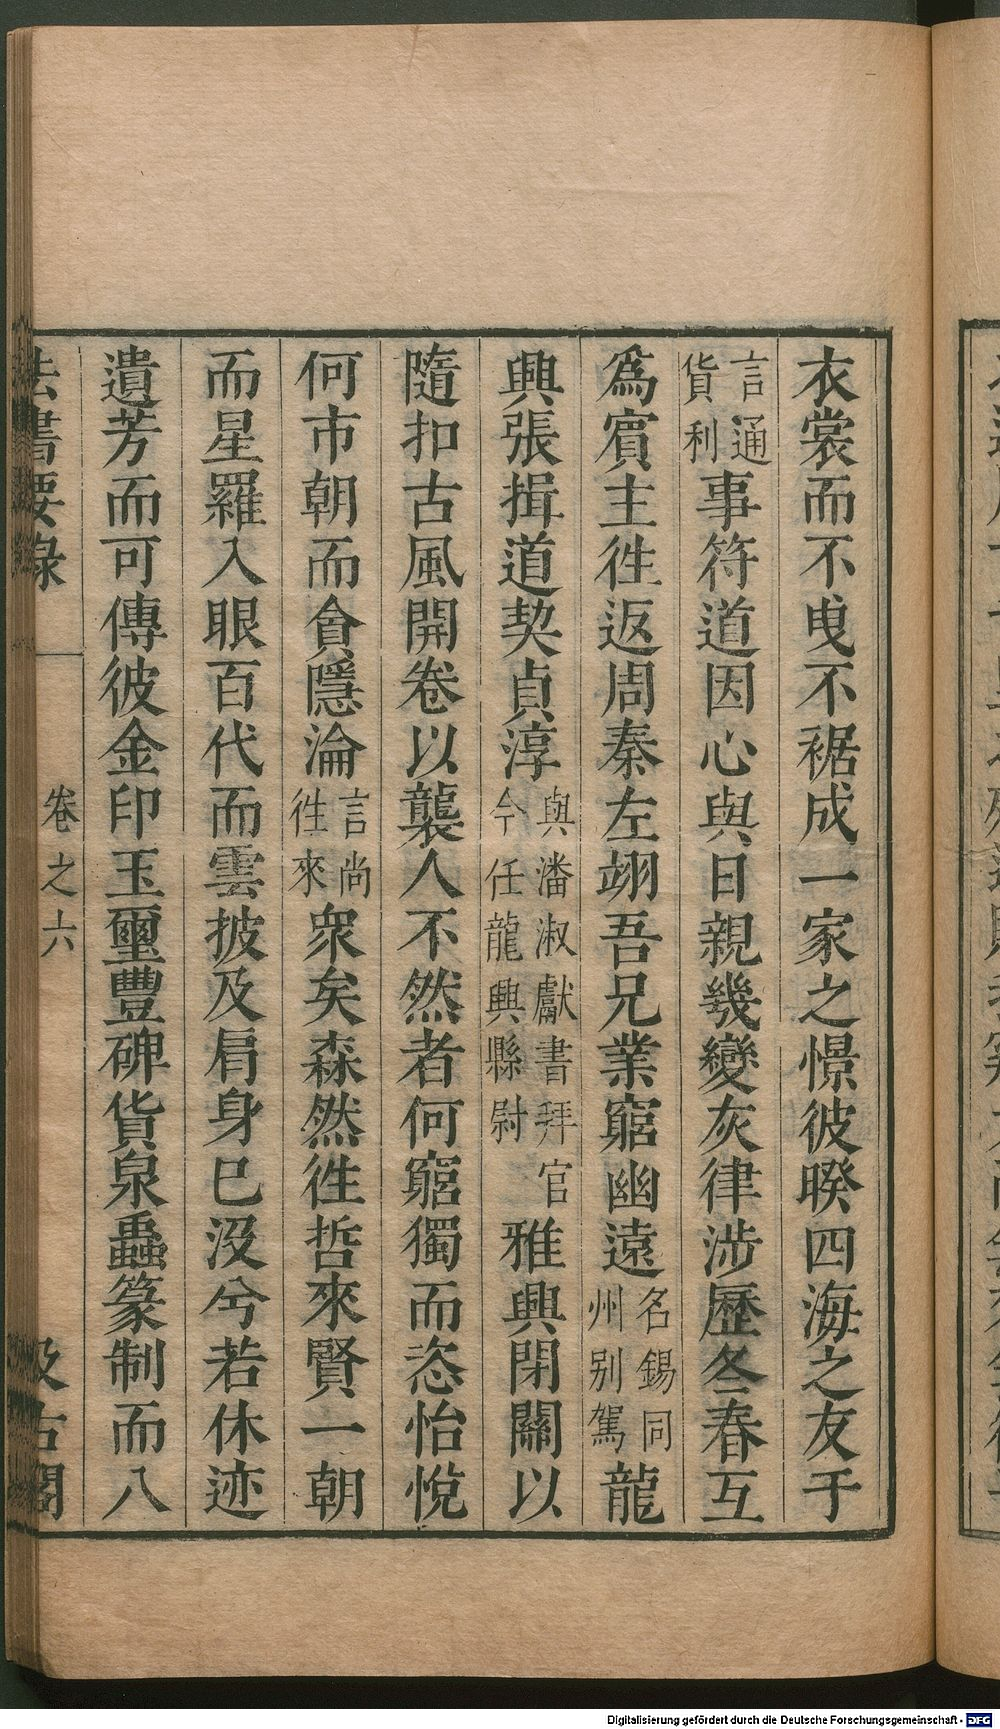 衣裳而不曳不裾成一家之憬彼暌四海之友于
言通貨利事符道因心與日親幾變灰律涉歷冬春互
爲賓主徃返周秦左翊吾兄業窮幽遠名錫同州别駕龍
興張揖道契貞淳與潘淑獻書拜官今任龍興縣尉雅興閉關以
隨扣古風開卷以襲人不然者何窮獨而恣怡悅
何市朝而貪隱淪言尚徃來衆矣森然徃哲來賢一朝
而星羅入眼百代而雲披及肩身已沒兮若休迹
遺芳而可傳彼金印玉璽豐碑貨泉蟲篆制而八
法書要錄 卷之六 汲古閣
Digitalisierung gefördert durch die Deutsche Forschungsgemeinschaft - DFG